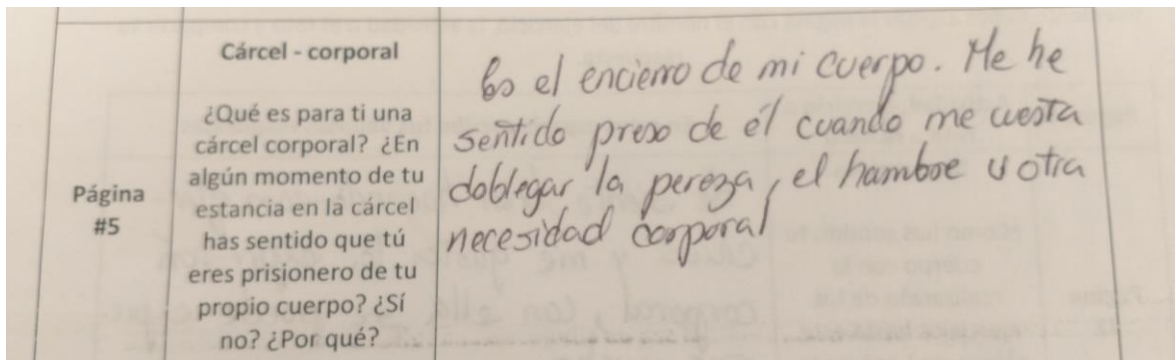 Página
#5
Cárcel - corporal
¿Qué es para ti una
cárcel corporal? ¿En
algún momento de tu
estancia en la cárcel
has sentido que tú
eres prisionero de tu
propio cuerpo? ¿Sí
no? ¿Por qué?
Es el encierro de mi cuerpo. Me he
sentido preso de él cuando me cuesta
doblegar la pereza, el hambre u otra
necesidad corporal